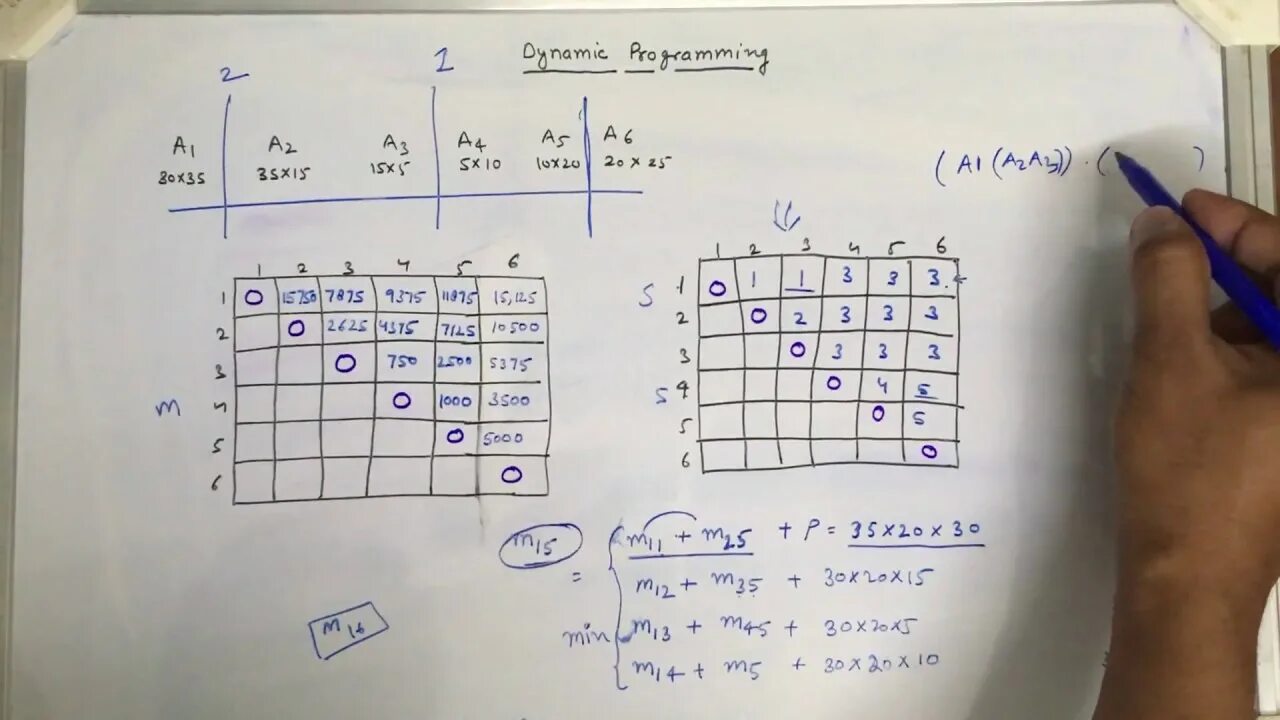 Dynamic Programming
2 1
A1 A2 A3 A4 A5 A6
30×35 35×15 15×5 5×10 10×20 20×25
(A1(A2A3))·( )
1 2 3 4 5 6
1 0 15750 7875 9375 11875 15,125
2 0 2625 4375 7125 10500
3 0 750 2500 5375
m 4 0 1000 3500
5 0 5000
6 0
1 2 3 4 5 6
S 1 0 1 1 3 3 3.
2 0 2 3 3 3
3 0 3 3 3
S 4 0 4 5
5 0 5
6 0
m15 = min
m11 + m25 + P = 35×20×30
m12 + m35 + 30×20×15
m13 + m45 + 30×20×5
m14 + m5 + 30×20×10
m16